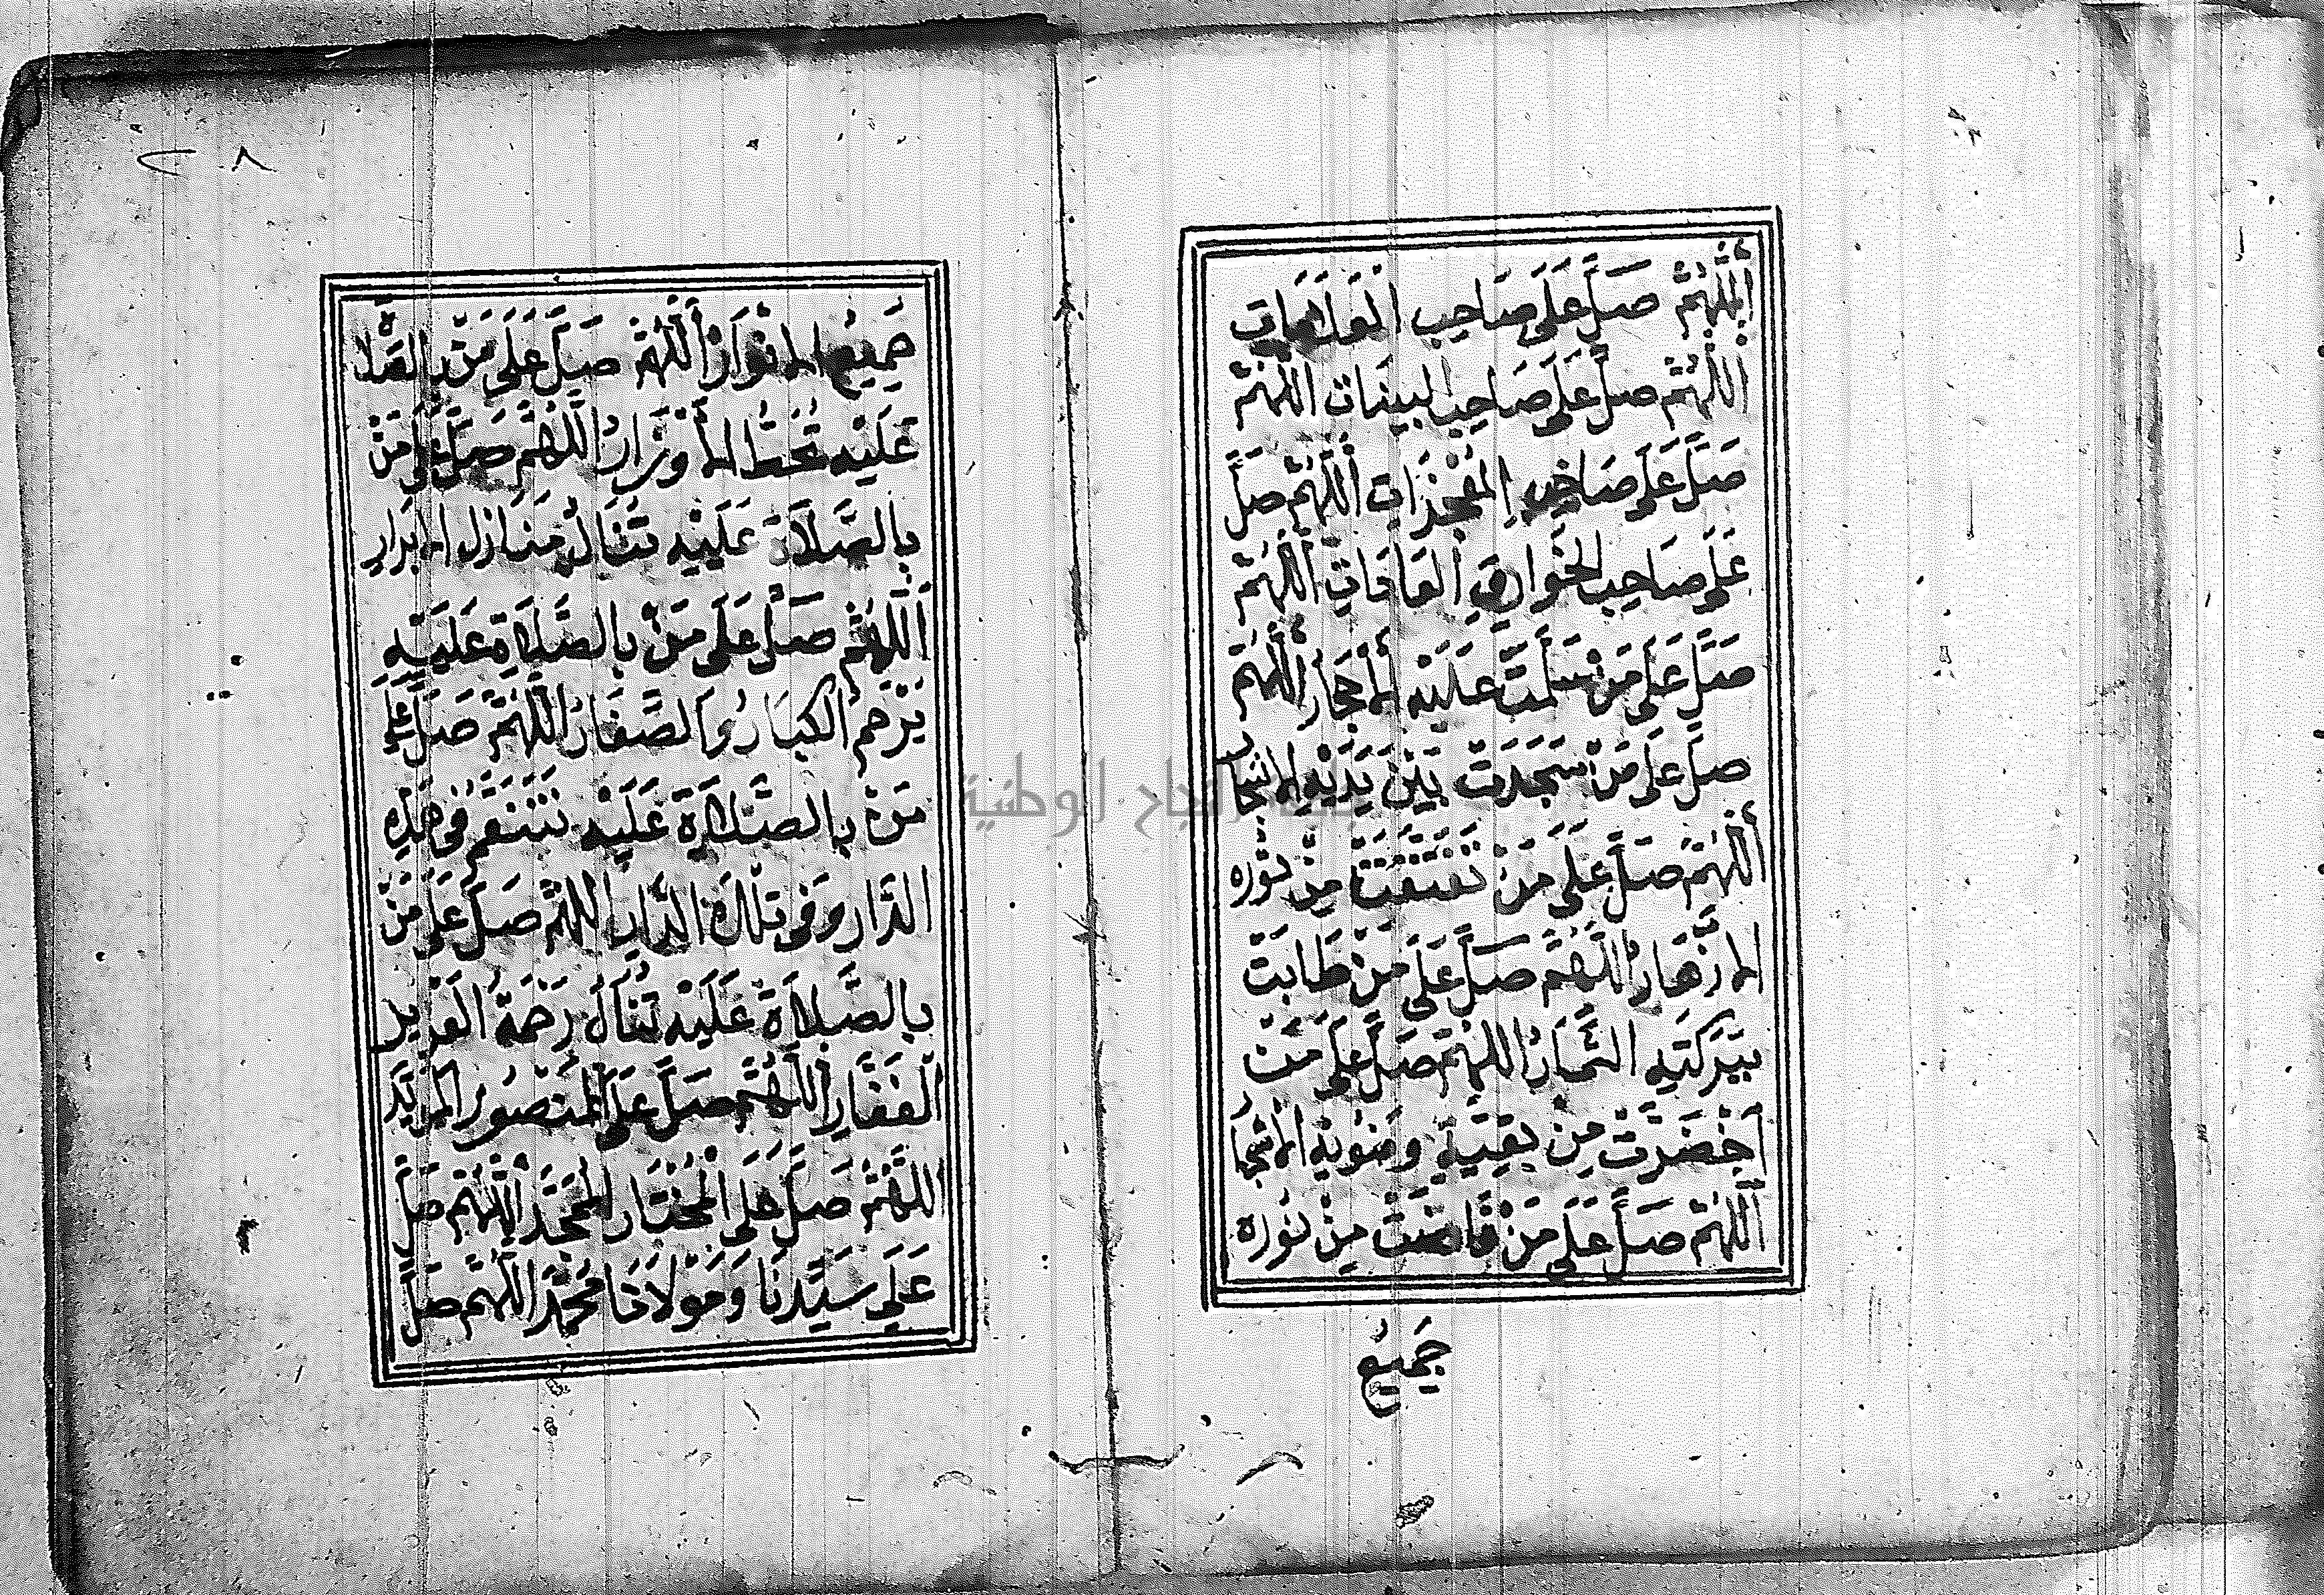 أَللّٰهُمَّ صَلِّ عَلَى صَاحِبِ الْعَلَامَاتِ
اَللّٰهُمَّ صَلِّ عَلَى صَاحِبِ البَيِّنَاتِ اللّٰهُمَّ
صَلِّ عَلَى صَاحِبِ الْمُعْجِزَاتِ أَللّٰهُمَّ صَلِّ
عَلَى صَاحِبِ الخَوَارِقِ العَادَاتِ اللّٰهُمَّ
صَلِّ عَلَى مَنْ سَلَّمَتْ عَلَيْهِ الْأَحْجَارُ اَللّٰهُمَّ
صَلِّ عَلَى مَنْ سَجَدَتْ بَيْنَ يَدَيْهِ الاشجار
أَللّٰهُمَّ صَلِّ عَلَى مَنْ تَفَتَّقَتْ مِنْ نُوْرِهِ
الأَزْهَارُ اللّٰهُمَّ صَلِّ عَلَى مَنْ طَابَتْ
بِبَرَكَتِهِ الثِّمَارُ اللّٰهُمَّ صَلِّ عَلَى مَنْ
اَخْضَرَّتْ مِنْ بَقِيَّةِ وَضُوْئِهِ الْأَشْجَارُ
اَللّٰهُمَّ صَلِّ عَلَى مَنْ فَاضَتْ مِنْ نُوْرِهِ
جَمِيْعُ
٢٠٨
جَمِيْعُ الأنْوَارْ أَللّٰهُمَّ صَلِّ عَلَى مَنْ بِالصَّلَا
عَلَيْهِ تُحَطُّ الأَوْزَارُ اللّٰهُمَّ صَلِّ عَلَى مَنْ
بِالصَّلَاةِ عَلَيْهِ تَنَالُ مَنَازِلِ الأَبْرَارِ
اَللّٰهُمَّ صَلِّ عَلَى مَنْ بِالصَّلَاةِ عَلَيْهِ
يُرْحَمُ الكِبَارُ وَالصِّغَارُ اَللّٰهُمَّ صَلِّ عَلَى
مَنْ بِالصَّلَاةِ عَلَيْهِ نَتَنَعَّمُ فِي هَذِهِ
الدَّارِ وَفِي تِلْكَ الدَّارِ اللّٰهُمَّ صَلِّ عَلَى مَنْ
بِالصَّلَاةِ عَلَيْهِ تُنَالُ رَحْمَةُ العَزِيْزِ
الْغَفَّارِ اللّٰهُمَّ صَلِّ عَلَى الْمَنْصُوْرِ المُؤَيَّدِ
اللّٰهُمَّ صَلِّ عَلَى الْمُخْتَارِ الْمُمَجَّدِ اَللّٰهُمَّ صَلِّ
عَلَى سَيِّدِنَا وَمَوْلَانَا مُحَمَّدْ اَللّٰهُمَّ صَلِّ
جامعة النجاح الوطنية